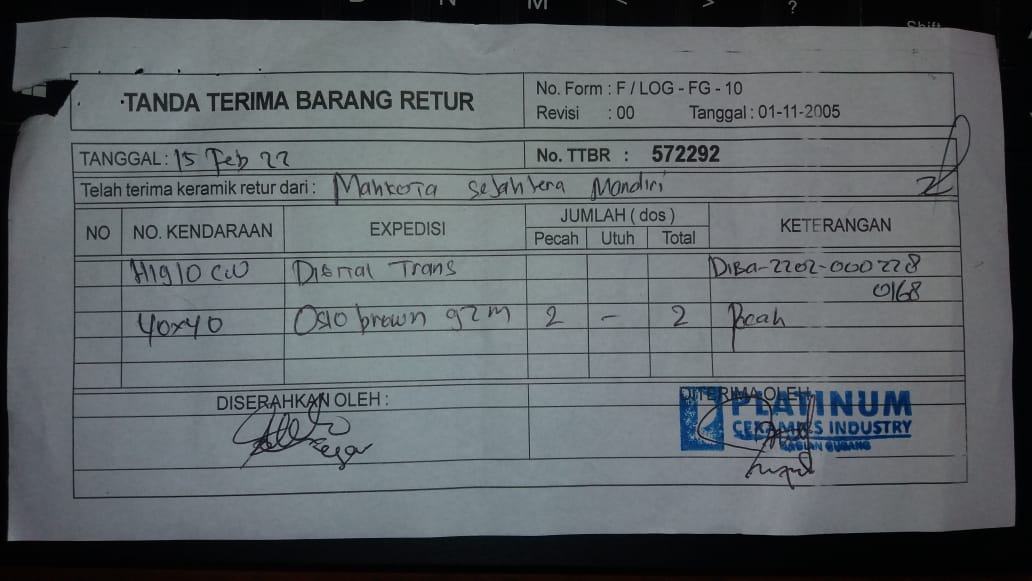 TANDA TERIMA BARANG RETUR
No. Form : F / LOG - FG - 10
Revisi : 00 Tanggal : 01-11-2005
TANGGAL : 15 Feb 22
No. TTBR : 572292
Telah terima keramik retur dari : Mahkota Sejahtera Mandiri
NO NO. KENDARAAN EXPEDISI JUMLAH ( dos ) KETERANGAN
Pecah Utuh Total
Digital Trans DIBA-2202-000228
0168
40x40 Oslo brown gzm 2 - 2 Pecah
DISERAHKAN OLEH :
DITERIMA OLEH
PLATINUM
CERAMICS INDUSTRY
BAGIAN GUDANG
N M < > ?
Shift